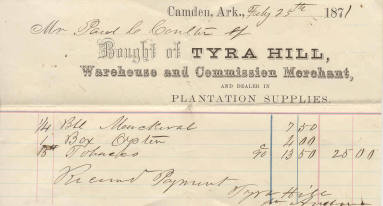 Camden, Ark., July 25th 1871
Mr Paul C Coulter
Bought of TYRA HILL,
Warehouse and Commission Merchant,
AND DEALER IN
PLANTATION SUPPLIES.
1/4 Bbl 7 50
1 Box Oysters 4 00
15 Tobacco 90 13 50 25 00
Payment
Tyra Hill